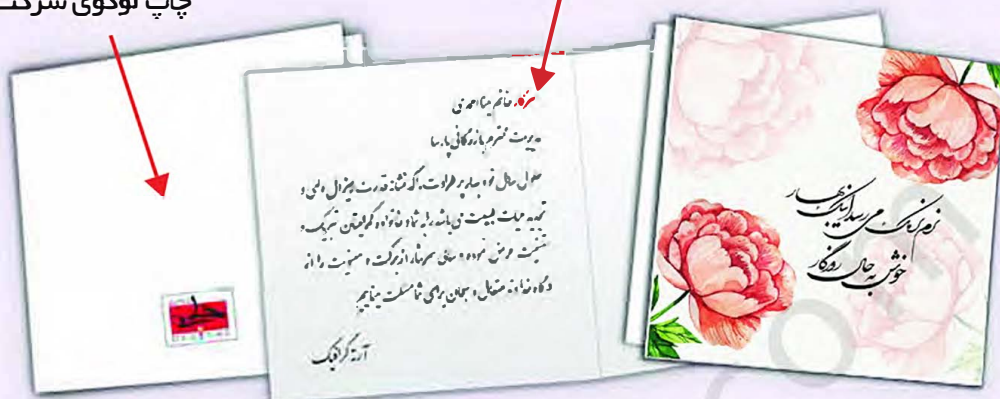 چاپ لوگوی شرکت
سرکار خانم مینا احمدی
مدیریت محترم بازرگانی پارسا
حلول سال نو و بهار پر طراوت را که نشانه قدرت لایزال الهی و
تجدید حیات طبیعت می باشد را به شما و خانواده گرامیتان تبریک و
تهنیت عرض نموده و سالی سرشار از برکت و معنویت را از
درگاه خداوند متعال و سبحان برای شما مسئلت مینماییم
آرته گرافیک
نرم نرمک می رسد اینک بهار
خوش به حال روزگار